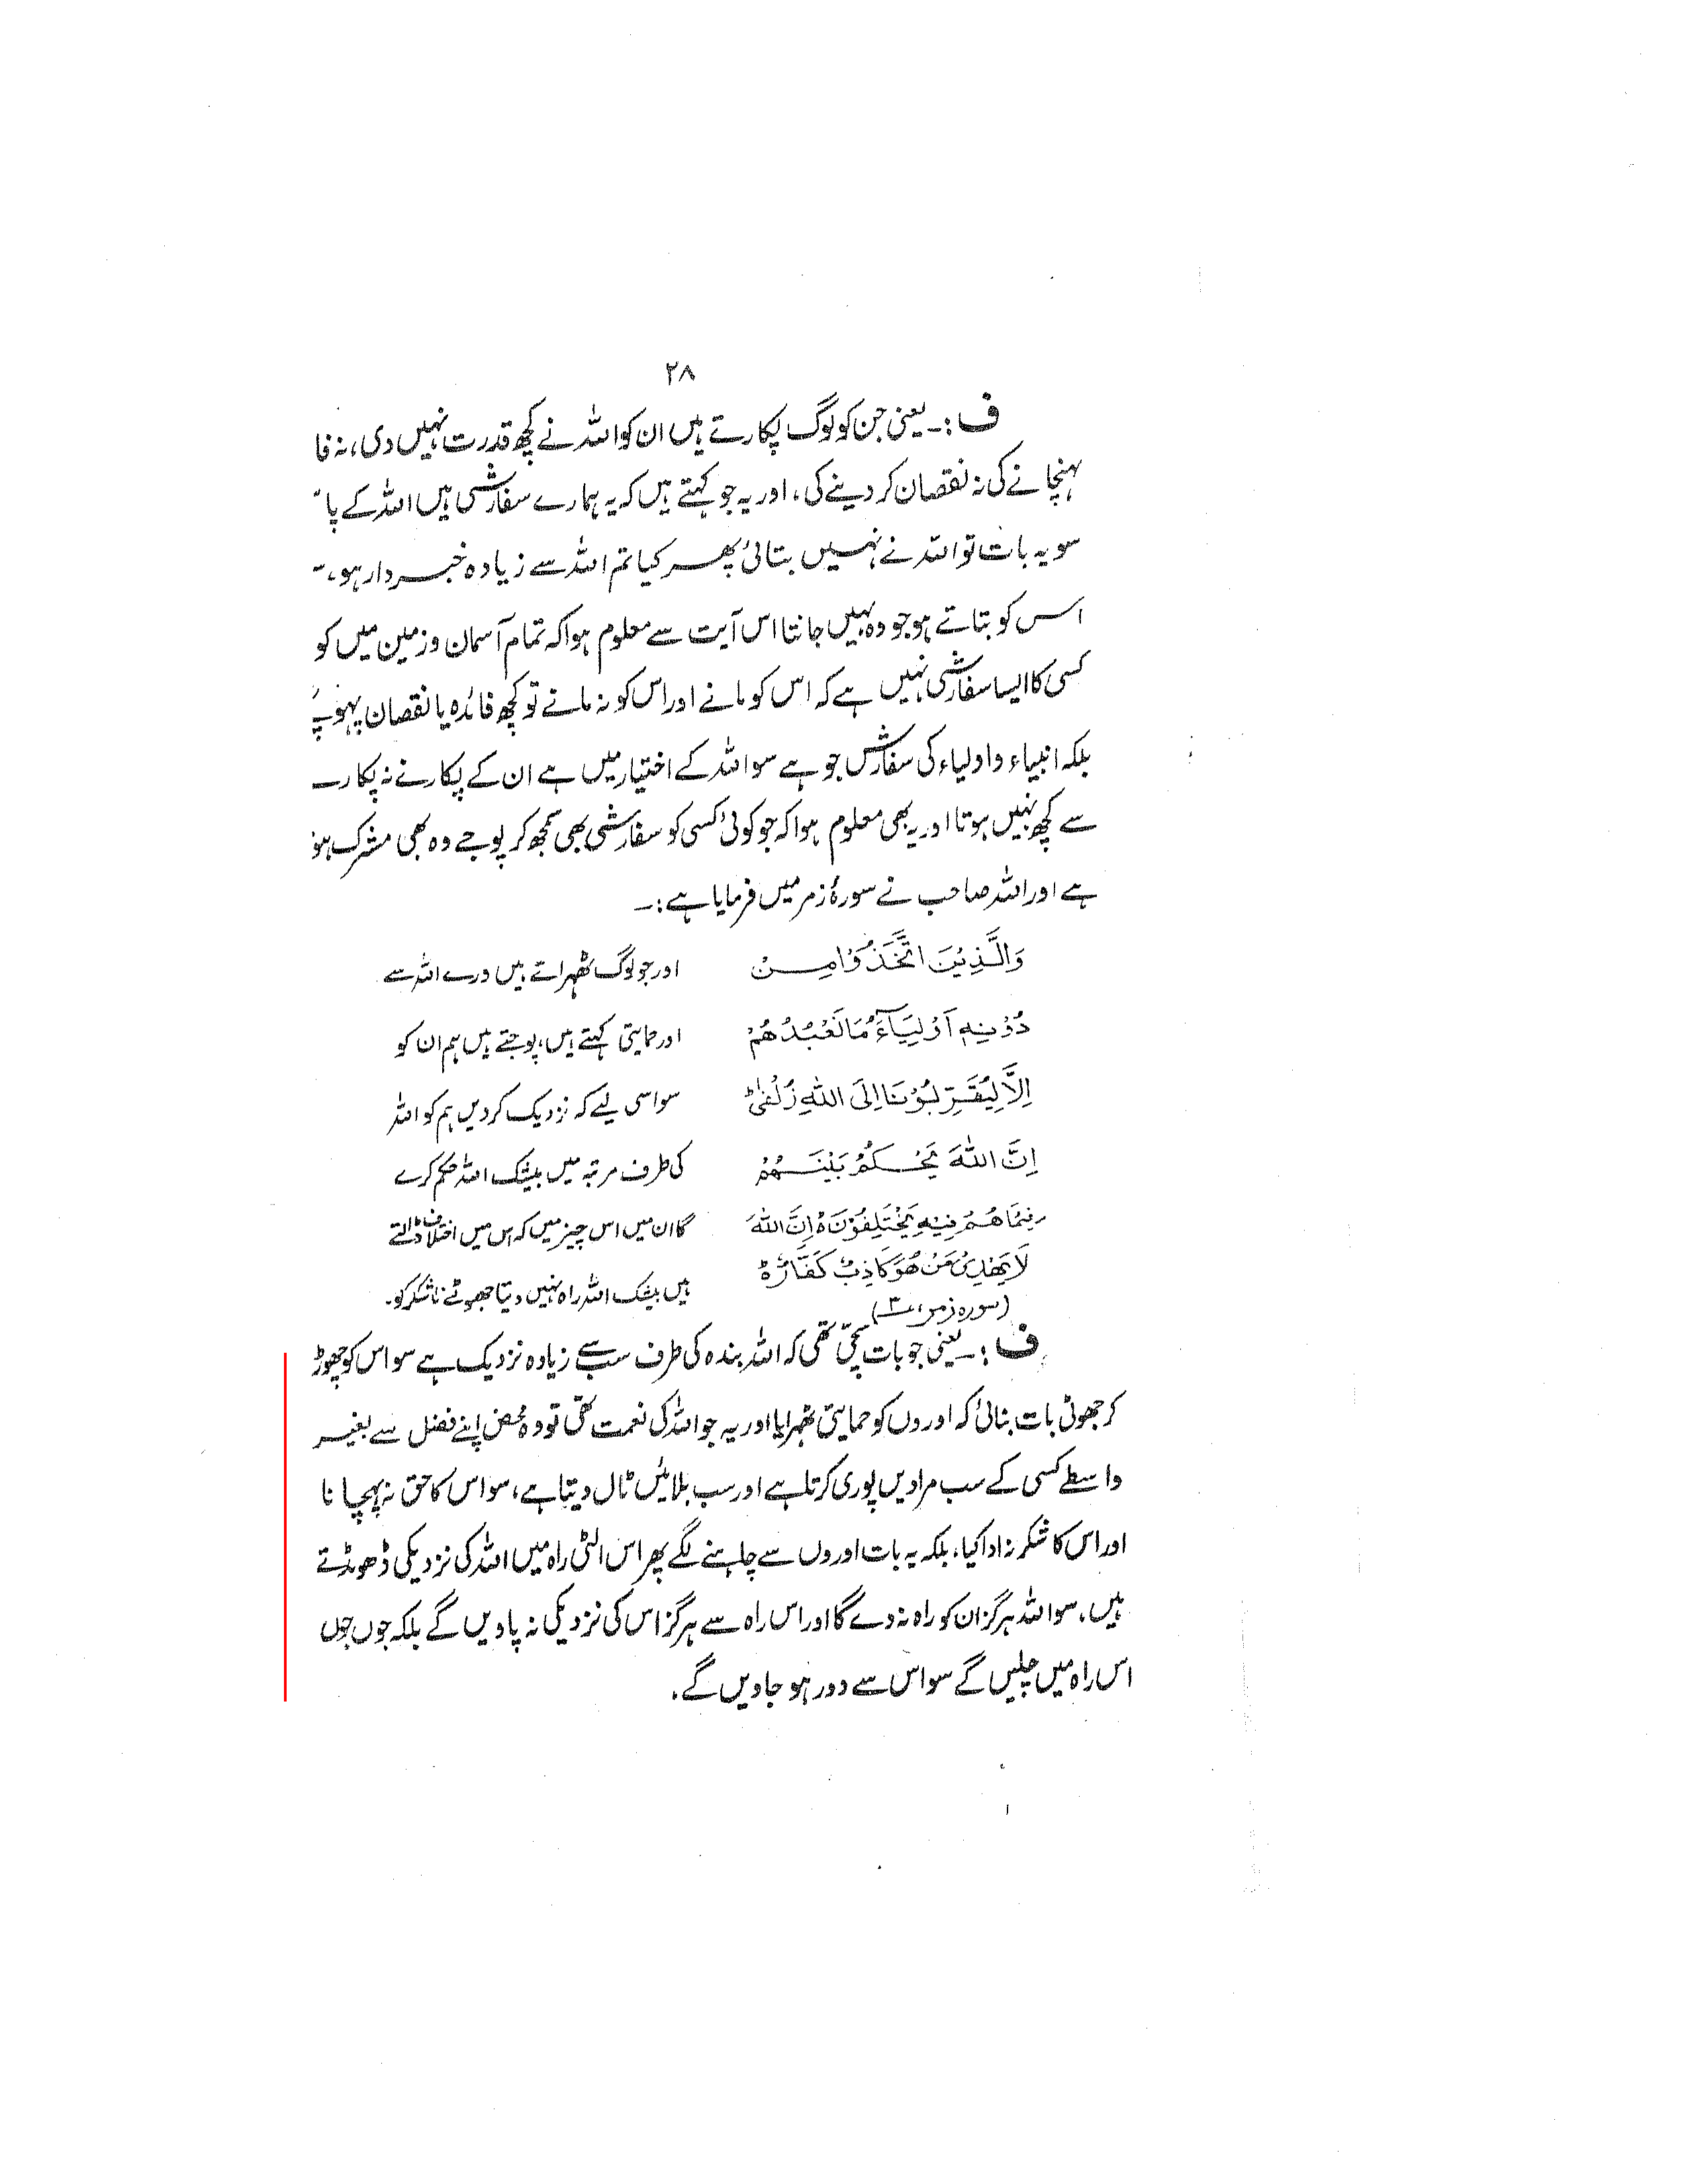 ۲۸
ف :۔ یعنی جن کو لوگ پکارتے ہیں ان کو اللہ نے کچھ قدرت نہیں دی، نہ فا
پہنچانے کی نہ نقصان کر دینے کی، اور یہ جو کہتے ہیں کہ یہ ہمارے سفارشی ہیں اللہ کے پا
سو یہ بات تو اللہ نے نہیں بتائی پھر کیا تم اللہ سے زیادہ خبردار ہو،
اس کو بتاتے ہو جو وہ نہیں جانتا اس آیت سے معلوم ہوا کہ تمام آسمان و زمین میں کو
کسی کا ایسا سفارشی نہیں ہے کہ اس کو مانے اور اس کو نہ مانے تو کچھ فائدہ یا نقصان پہو
بلکہ انبیاء و اولیاء کی سفارش جو ہے سو اللہ کے اختیار میں ہے ان کے پکارنے نہ پکار
سے کچھ نہیں ہوتا اور یہ بھی معلوم ہوا کہ جو کوئی کسی کو سفارشی بھی سمجھ کر پوجے وہ بھی مشرک ہو
ہے اور اللہ صاحب نے سورۂ زمر میں فرمایا ہے :۔
وَالَّذِيْنَ اتَّخَذُوْا مِنْ
دُوْنِهٖ اَوْلِيَآءَ مَا نَعْبُدُهُمْ
اِلَّا لِيُقَرِّبُوْنَا اِلَى اللّٰهِ زُلْفٰى ؕ
اِنَّ اللّٰهَ يَحْكُمُ بَيْنَهُمْ
فِيْمَا هُمْ فِيْهِ يَخْتَلِفُوْنَ ۀ اِنَّ اللّٰهَ
لَا يَهْدِيْ مَنْ هُوَ كَاذِبٌ كَفَّارٌ ۀ
(سورہ زمر، ۳)
اور جو لوگ ٹھہراتے ہیں ورے اللہ سے
اور حمایتی کہتے ہیں، پوجتے ہیں ہم ان کو
سو اسی لیے کہ نزدیک کر دیں ہم کو اللہ
کی طرف مرتبہ میں بیشک اللہ حکم کرے
گا ان میں اس چیز میں کہ اس میں اختلاف ڈالتے
ہیں بیشک اللہ راہ نہیں دیتا جھوٹے ناشکر کو۔
ف :۔ یعنی جو بات سچی تھی کہ اللہ بندہ کی طرف سب سے زیادہ نزدیک ہے سو اس کو چھوڑ
کر جھوٹی بات بنائی کہ اوروں کو حمایتی ٹھہرایا اور یہ جو اللہ کی نعمت تھی تو وہ محض اپنے فضل سے بغیر
واسطے کسی کے سب مرادیں پوری کرتا ہے اور سب بلائیں ٹال دیتا ہے، سو اس کا حق نہ پہچانا
اور اس کا شکر نہ ادا کیا، بلکہ یہ بات اوروں سے چاہنے لگے پھر اس الٹی راہ میں اللہ کی نزدیکی ڈھونڈتے
ہیں، سو اللہ ہرگز ان کو راہ نہ دے گا اور اس راہ سے ہرگز اس کی نزدیکی نہ پاویں گے بلکہ جوں جوں
اس راہ میں چلیں گے سو اس سے دور ہو جاویں گے۔